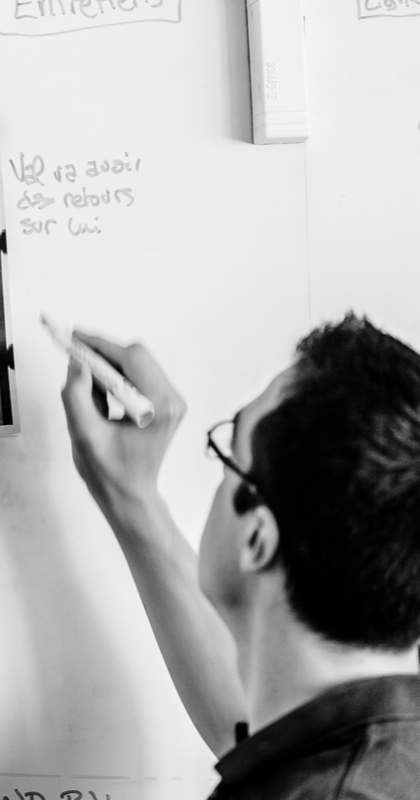 Entretiens
Val va avoir
des retours
sur lui